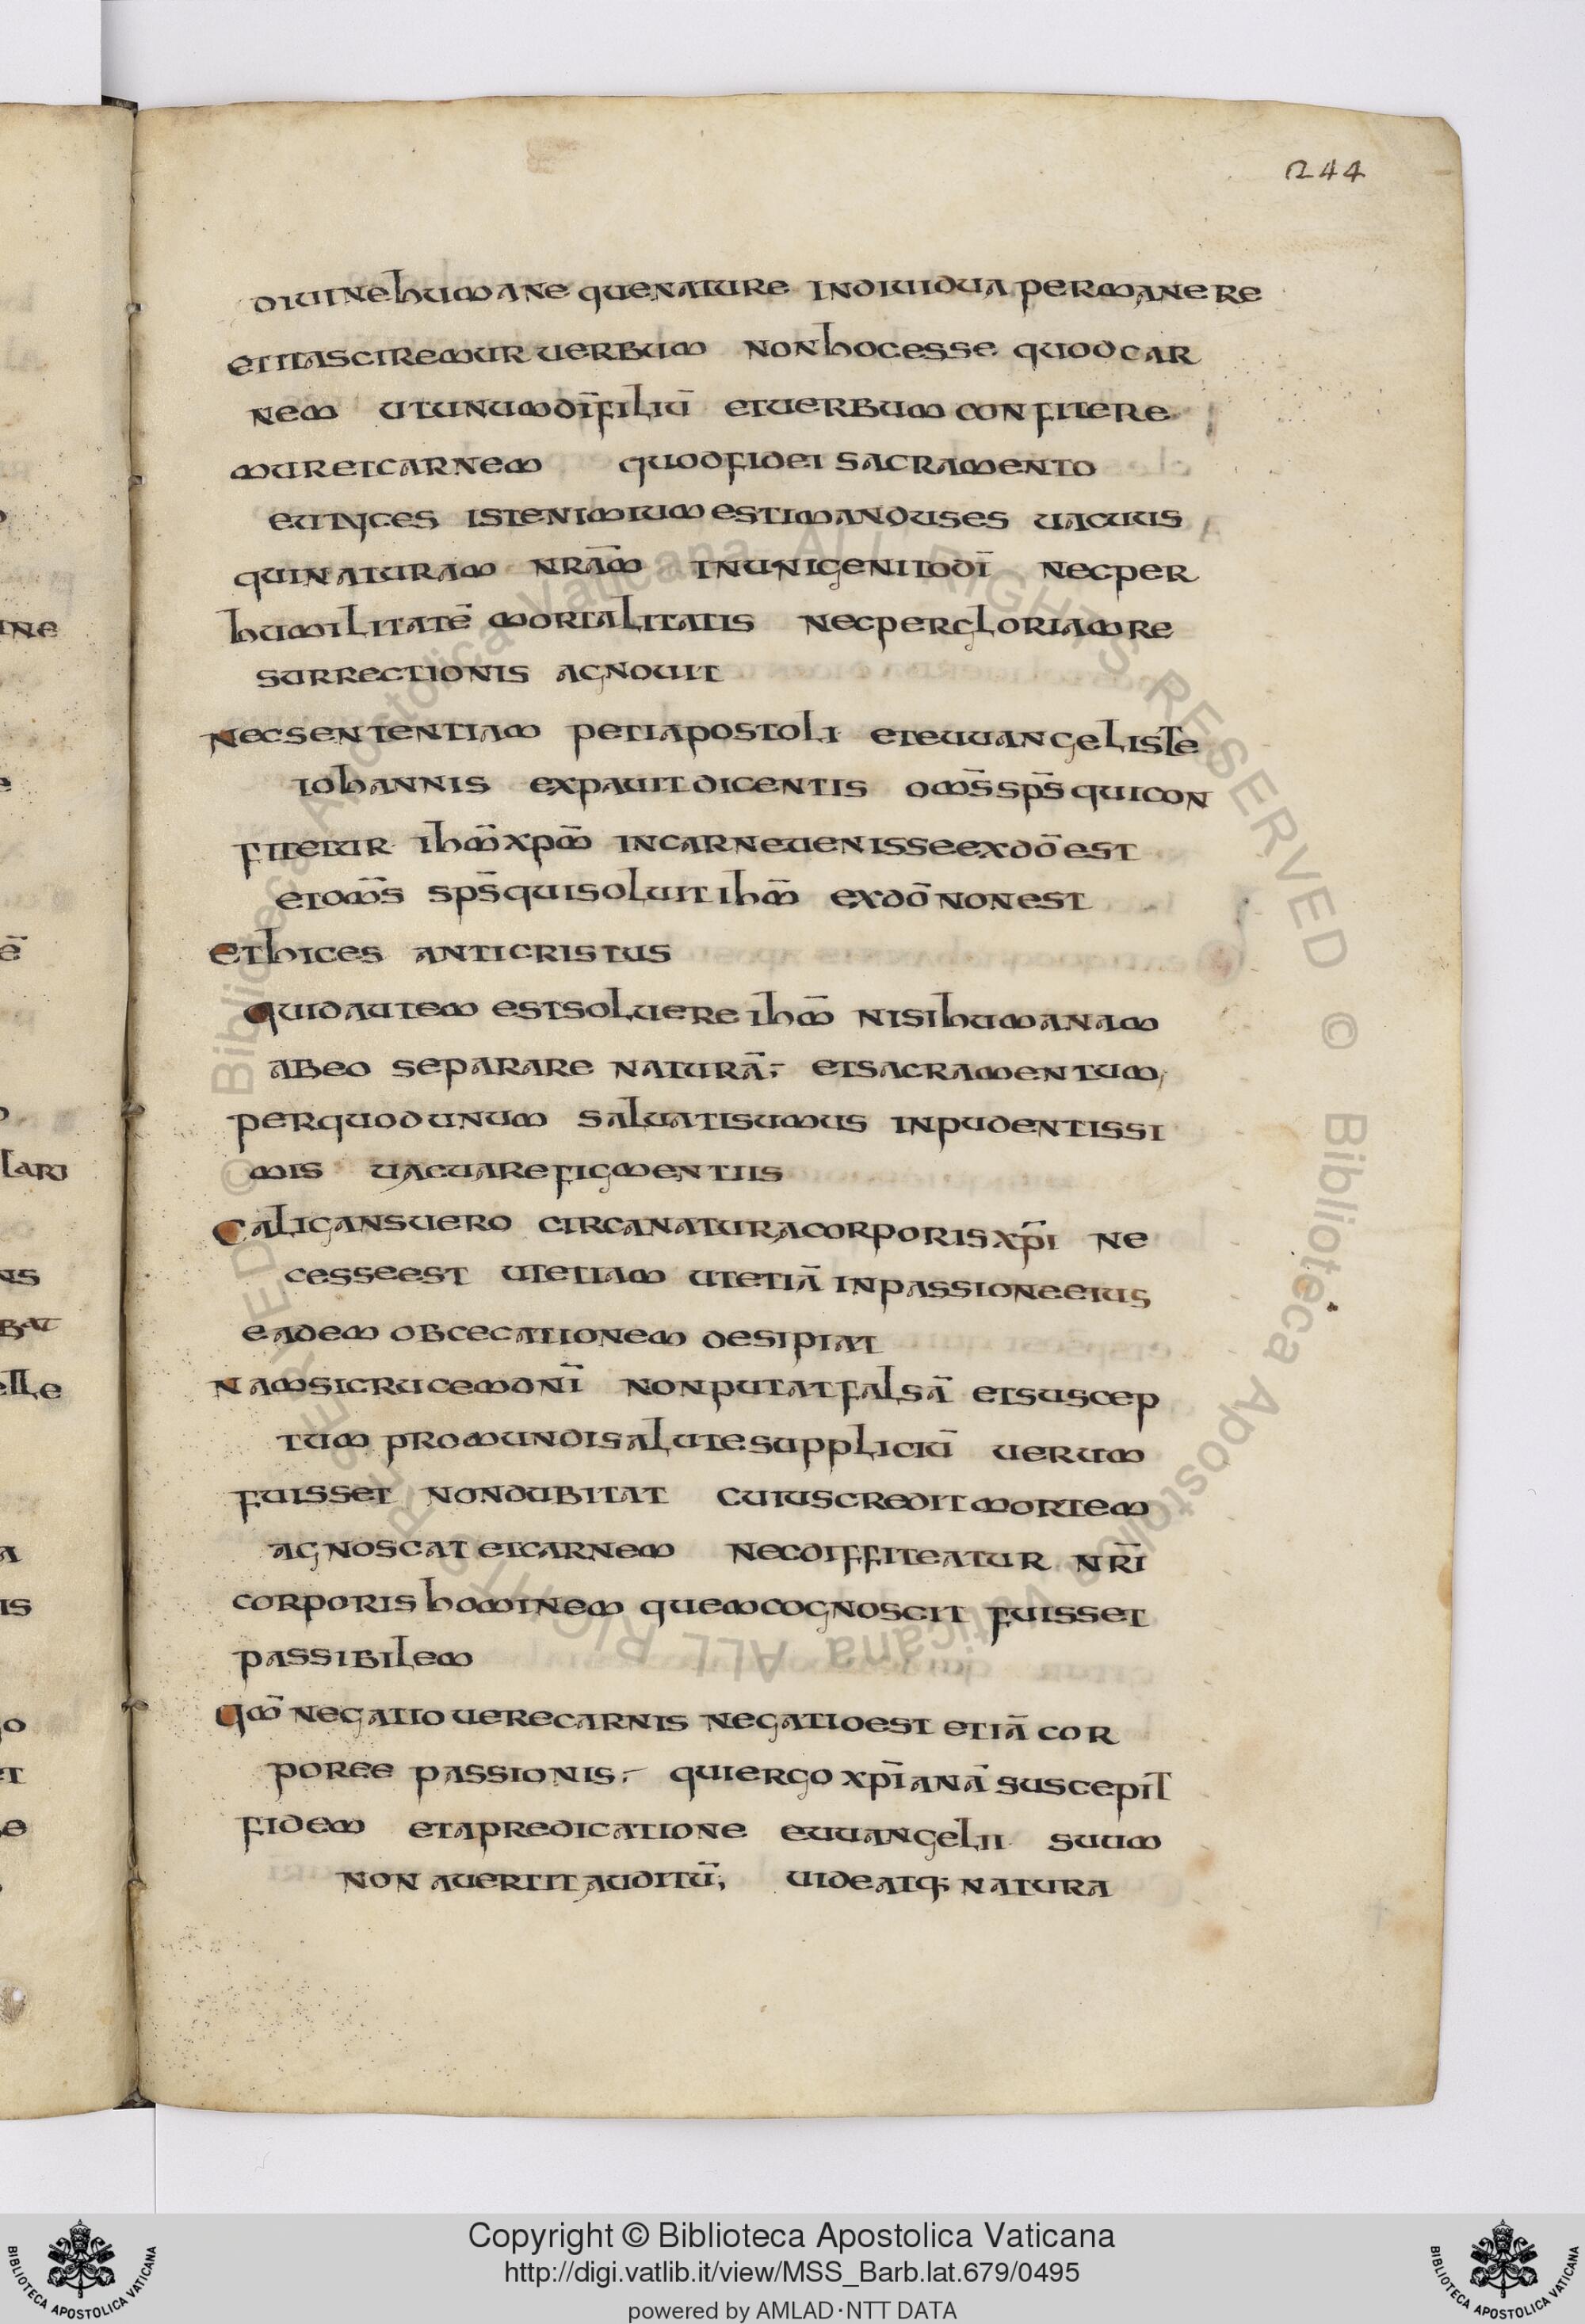 244
diuine humane que nature indiuidua permanere
et ita sciremur uerbum non hoc esse quod car
nem ut unum dī filiū et uerbum confitere
mur et carnem quod fidei sacramento
eutyces iste nimium estimandus es uacuus
qui naturam nrām in unigenito dī nec per
humilitatē mortalitatis nec per gloriam re
surrectionis agnouit
nec sententiam peti apostoli et euuangeliste
iohannis expauit dicentis om̄s sp̄s qui con
fitetur ihm̄ xpm̄ in carne uenisse ex dō est
et om̄s sp̄s qui soluit ihm̄ ex dō non est
et hic es anticristus
quid autem est soluere ihm̄ nisi humanam
ab eo separare naturā; et sacramentum,
per quod unum saluati sumus inpudentissi
mis uacuare figmentiis
caligans uero circa natura corporis xp̄i ne
cesse est ut etiam ut etiā in passione eius
eadem obcecationem desipiat
nam si crucem dnī non putat falsā et suscep
tum pro mundi salute suppliciū uerum
fuisset non dubitat cuius credit mortem
agnoscat et carnem nec diffiteatur nrī
corporis hominem quem cognoscit fuisset
passibilem
qm̄ negatio uere carnis negatio est etiā cor
poree passionis; qui ergo xp̄ianā suscepit
fidem et a predicatione euuangelii suum
non auertit auditū; uideatq; natura
Copyright © Biblioteca Apostolica Vaticana
http://digi.vatlib.it/view/MSS_Barb.lat.679/0495
powered by AMLAD·NTT DATA